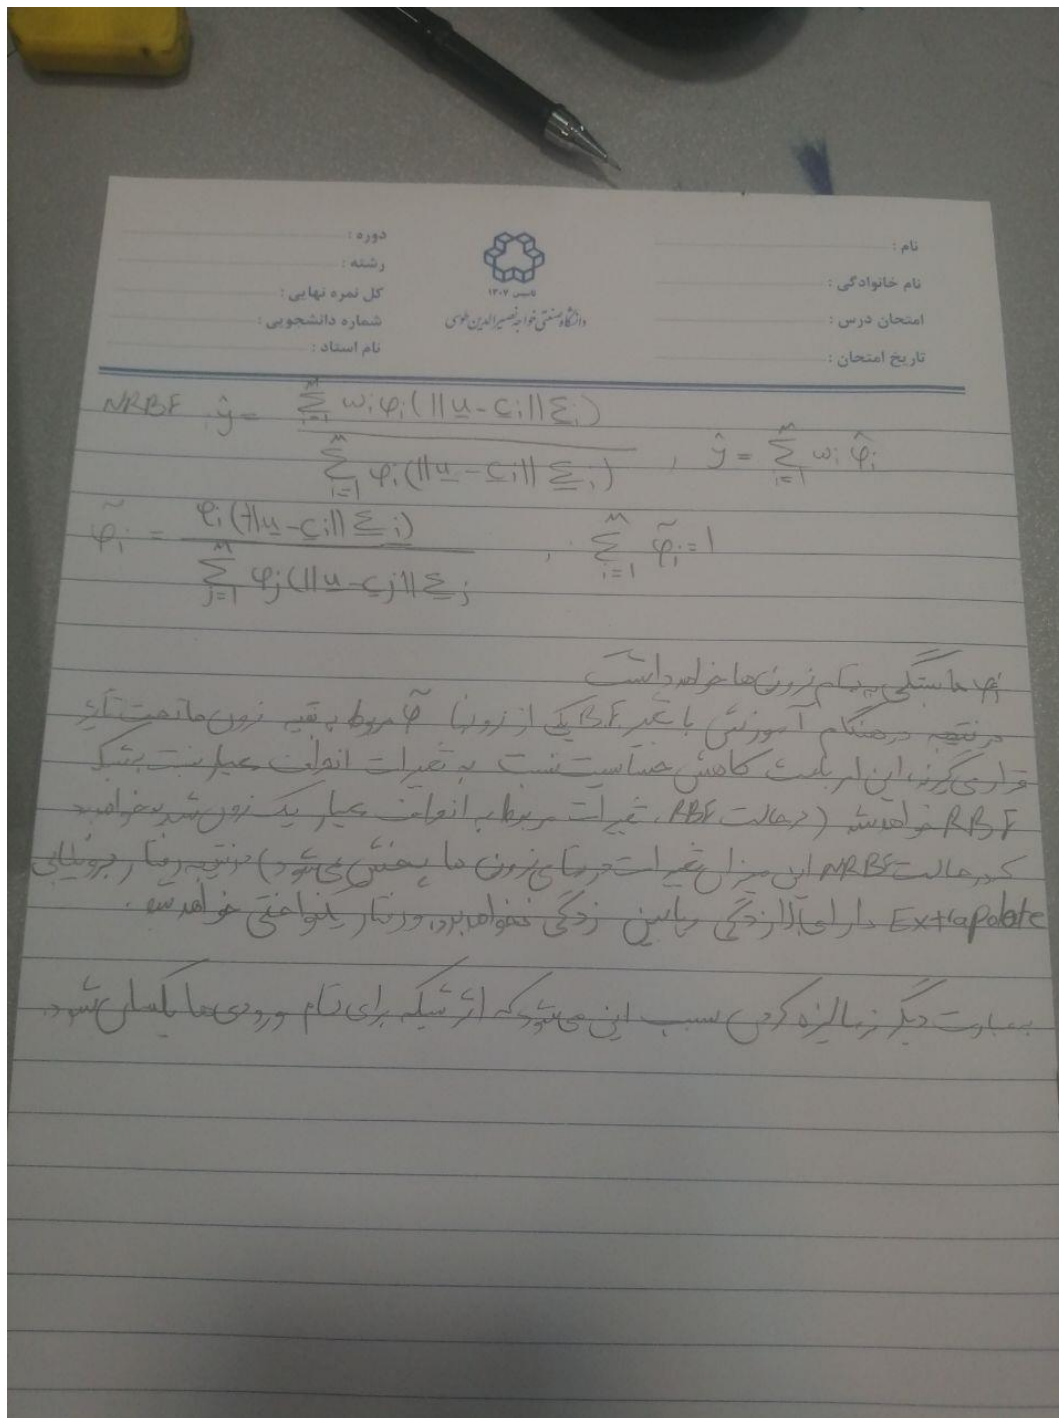 نام :
نام خانوادگی :
امتحان درس :
تاریخ امتحان :
تاسیس ۱۳۰۷
دانشگاه صنعتی خواجه نصیرالدین طوسی
دوره :
رشته :
کل نمره نهایی :
شماره دانشجویی :
نام استاد :
NRBF , ŷ = Σ_{i=1}^{M} w_i φ_i(||u - c_i|| Σ_i) / Σ_{i=1}^{M} φ_i(||u - c_i|| Σ_i) , ŷ = Σ_{i=1}^{M} w_i φ̃_i
φ̃_i = φ_i(||u - c_i|| Σ_i) / Σ_{j=1}^{M} φ_j(||u - c_j|| Σ_j , Σ_{i=1}^{M} φ̃_i = 1
φ̃_i ها بستگی به تمام نرون ها خواهد داشت
در نتیجه در هنگام آموزش با تغییر BF یکی از نرونها φ̃ مربوط به بقیه نرون ها تحت تاثیر
قرار می گیرند، این امر باعث کاهش حساسیت نسبت به تغییرات انحراف معیار نسبت به شبکه
RBF خواهد شد (در حالت RBF، تغییرات مربوط به انحراف معیار یک نرون
که در حالت NRBF این میزان تغییرات در تمامی نرون ها پخش می شود) در نتیجه رفتار برونیابی
Extrapolate دارای زدگی نخواهد بود، و رفتار یکنواختی خواهد
به عبارت دیگر نرمالیزه کردن سبب این می شود که اثر شبکه برای تمام ورودی ها یکسان شود.